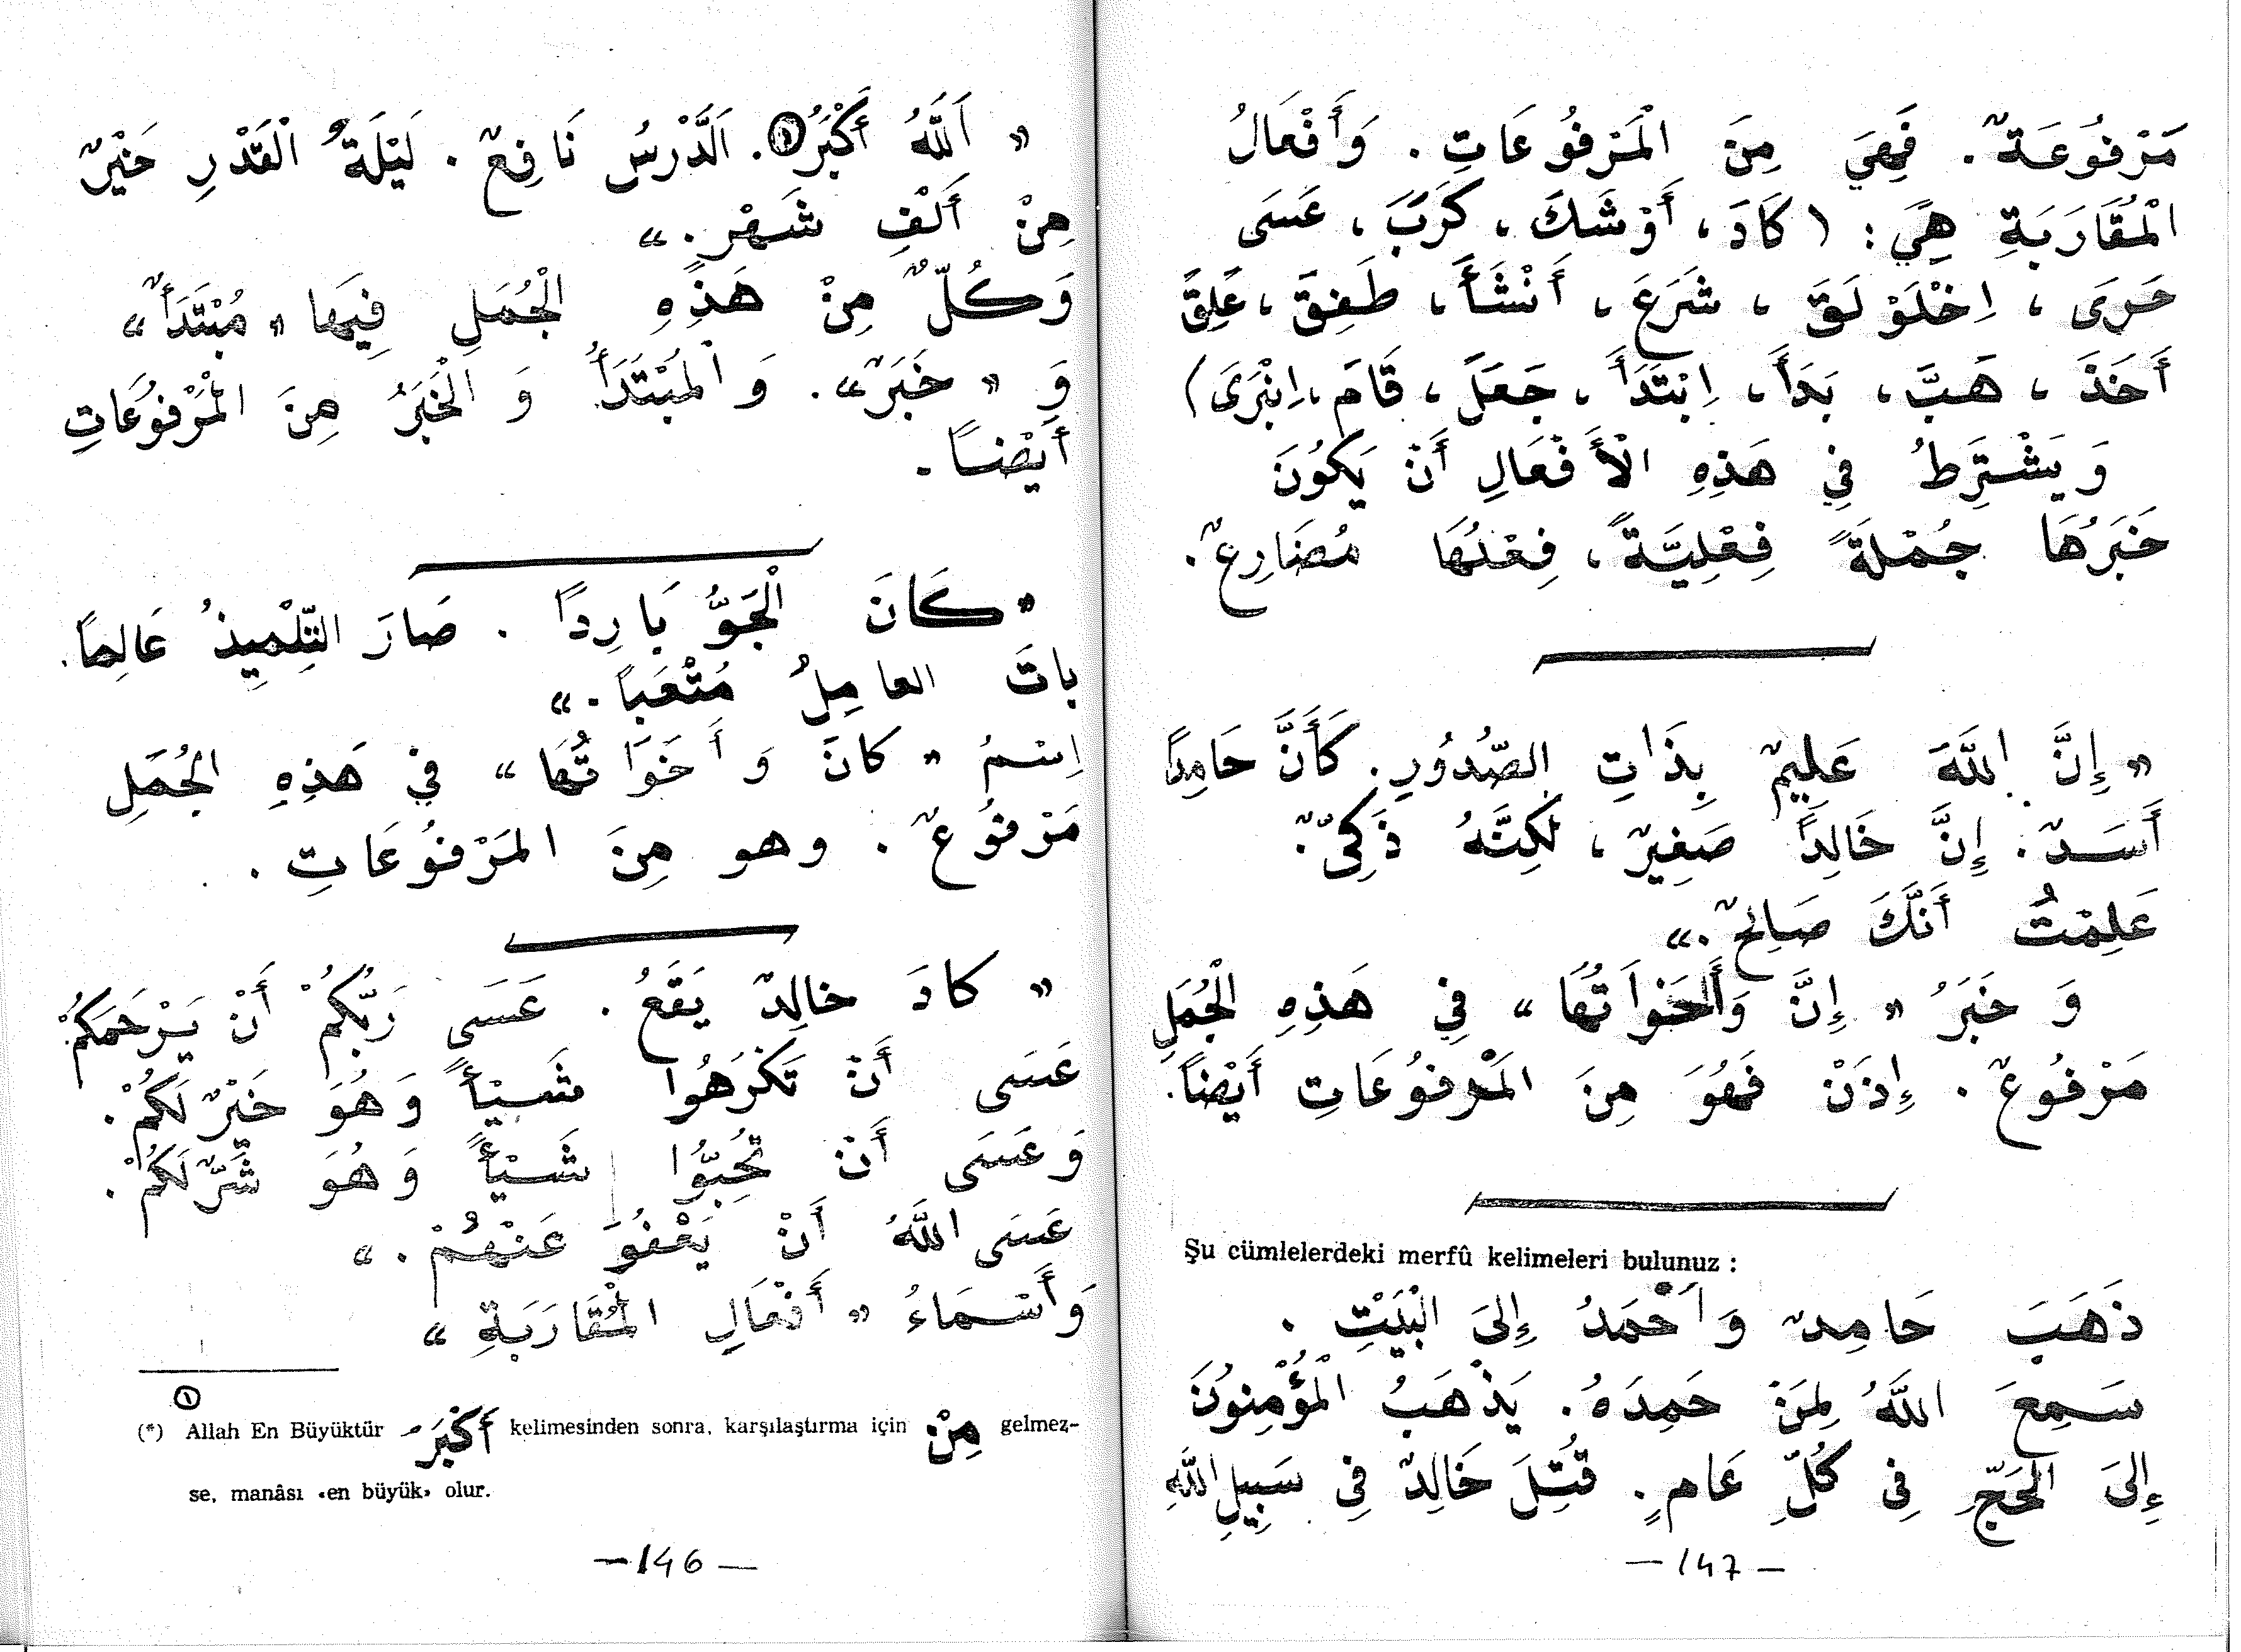 « اَللَّهُ أَكْبَرُ①. اَلدَّرْسُ نَافِعٌ. لَيْلَةُ الْقَدْرِ خَيْرٌ
مِنْ أَلْفِ شَهْرٍ.»
وَكُلٌّ مِنْ هَذِهِ الْجُمَلِ فِيهَا «مُبْتَدَأٌ»
وَ «خَبَرٌ». وَالْمُبْتَدَأُ وَ الْخَبَرُ مِنَ الْمَرْفُوعَاتِ
أَيْضاً.
«كَانَ الْجَوُّ بَارِداً. صَارَ التِّلْمِيذُ عَالِماً.
باتَ العامِلُ مُتْعَباً.»
اِسْمُ «كانَ وَأَخَوَاتُهَا» في هَذِهِ الجُمَلِ
مَرْفُوعٌ. وهو مِنَ المَرْفُوعَاتِ.
« كادَ خالِدٌ يَقَعُ. عَسَى رَبُّكُمْ أَنْ يَرْحَمَكُمْ.
عَسَى أَنْ تَكْرَهُوا شَيْأً وَهُوَ خَيْرٌ لَكُمْ.
وَعَسَى أَنْ تُحِبُّوا شَيْأً وَهُوَ شَرٌّ لَكُمْ.
عَسَى اللَّهُ أَنْ يَعْفُوَ عَنْهُمْ.»
وَأَسْمَاءُ «أَفْعَالِ الْمُقَارَبَةِ»
①
(*) Allah En Büyüktür أَكْبَرُ kelimesinden sonra, karşılaştırma için مِنْ gelmez-
se, manâsı «en büyük» olur.
—146—
مَرْفُوعَةٌ. فَهِيَ مِنَ الْمَرْفُوعَاتِ. وَأَفْعَالُ
الْمُقَارَبَةِ هِيَ: (كَادَ، أَوْشَكَ، كَرَبَ، عَسَى
حَرَى، اِخْلَوْلَقَ، شَرَعَ، أَنْشَأَ، طَفِقَ، عَلِقَ
أَخَذَ، هَبَّ، بَدَأَ، اِبْتَدَأَ، جَعَلَ، قَامَ، اِنْبَرَى)
وَيَشْتَرِطُ فِي هَذِهِ الْأَفْعَالِ أَنْ يَكُونَ
خَبَرُهَا جُمْلَةً فِعْلِيَّةً، فِعْلُهَا مُضَارِعٌ.
« إِنَّ اللَّهَ عَلِيمٌ بِذَاتِ الصُّدُورِ. كَأَنَّ حَامِداً
أَسَدٌ. إِنَّ خَالِداً صَغِيرٌ، لَكِنَّهُ ذَكِيٌّ.
عَلِمْتُ أَنَّكَ صَالِحٌ.»
وَ خَبَرُ «إِنَّ وَأَخَوَاتُهَا» فِي هَذِهِ الْجُمَلِ
مَرْفُوعٌ. إِذَنْ فَهُوَ مِنَ الْمَرْفُوعَاتِ أَيْضاً.
Şu cümlelerdeki merfû kelimeleri bulunuz :
ذَهَبَ حَامِدٌ وَأَحْمَدُ إِلَى الْبَيْتِ.
سَمِعَ اللَّهُ لِمَنْ حَمِدَهُ. يَذْهَبُ الْمُؤْمِنُونَ
إِلَى الْحَجِّ فِي كُلِّ عَامٍ. قُتِلَ خَالِدٌ فِي سَبِيلِ اللَّهِ
—147—